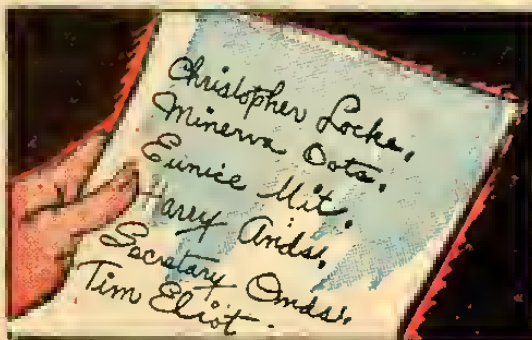 Christopher Locke,
Minerva Oots,
Eunice Mit,
Harry Ands,
Secretary Onds,
Tim Eliot.